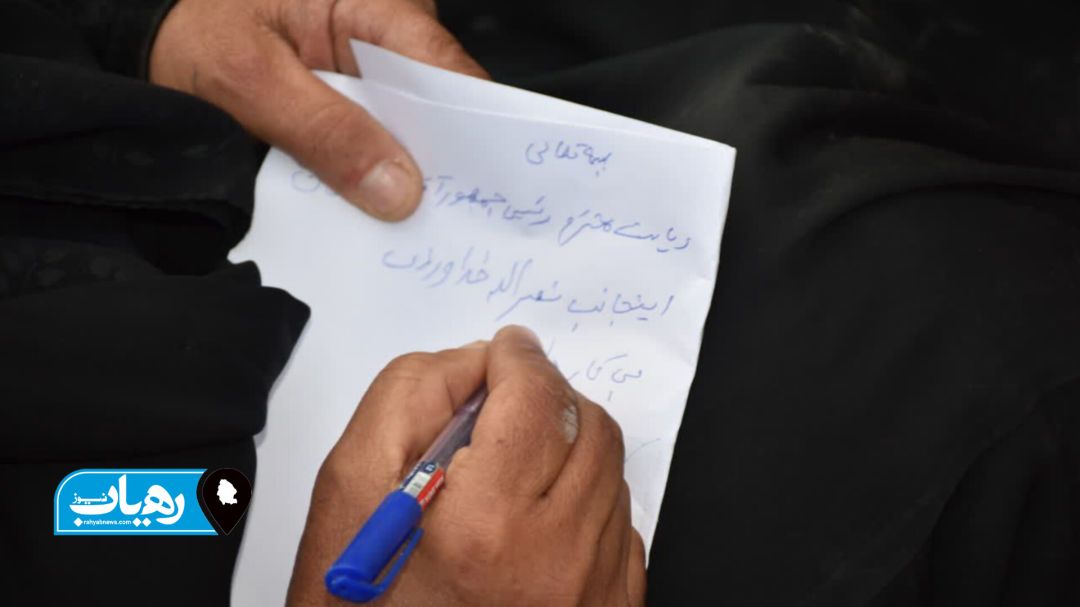 بسمه تعالی
ریاست محترم رئیس جمهور آ
اینجانب نصراله خداوردی
بی کار
رهیاب نیوز
rahyabnews.com